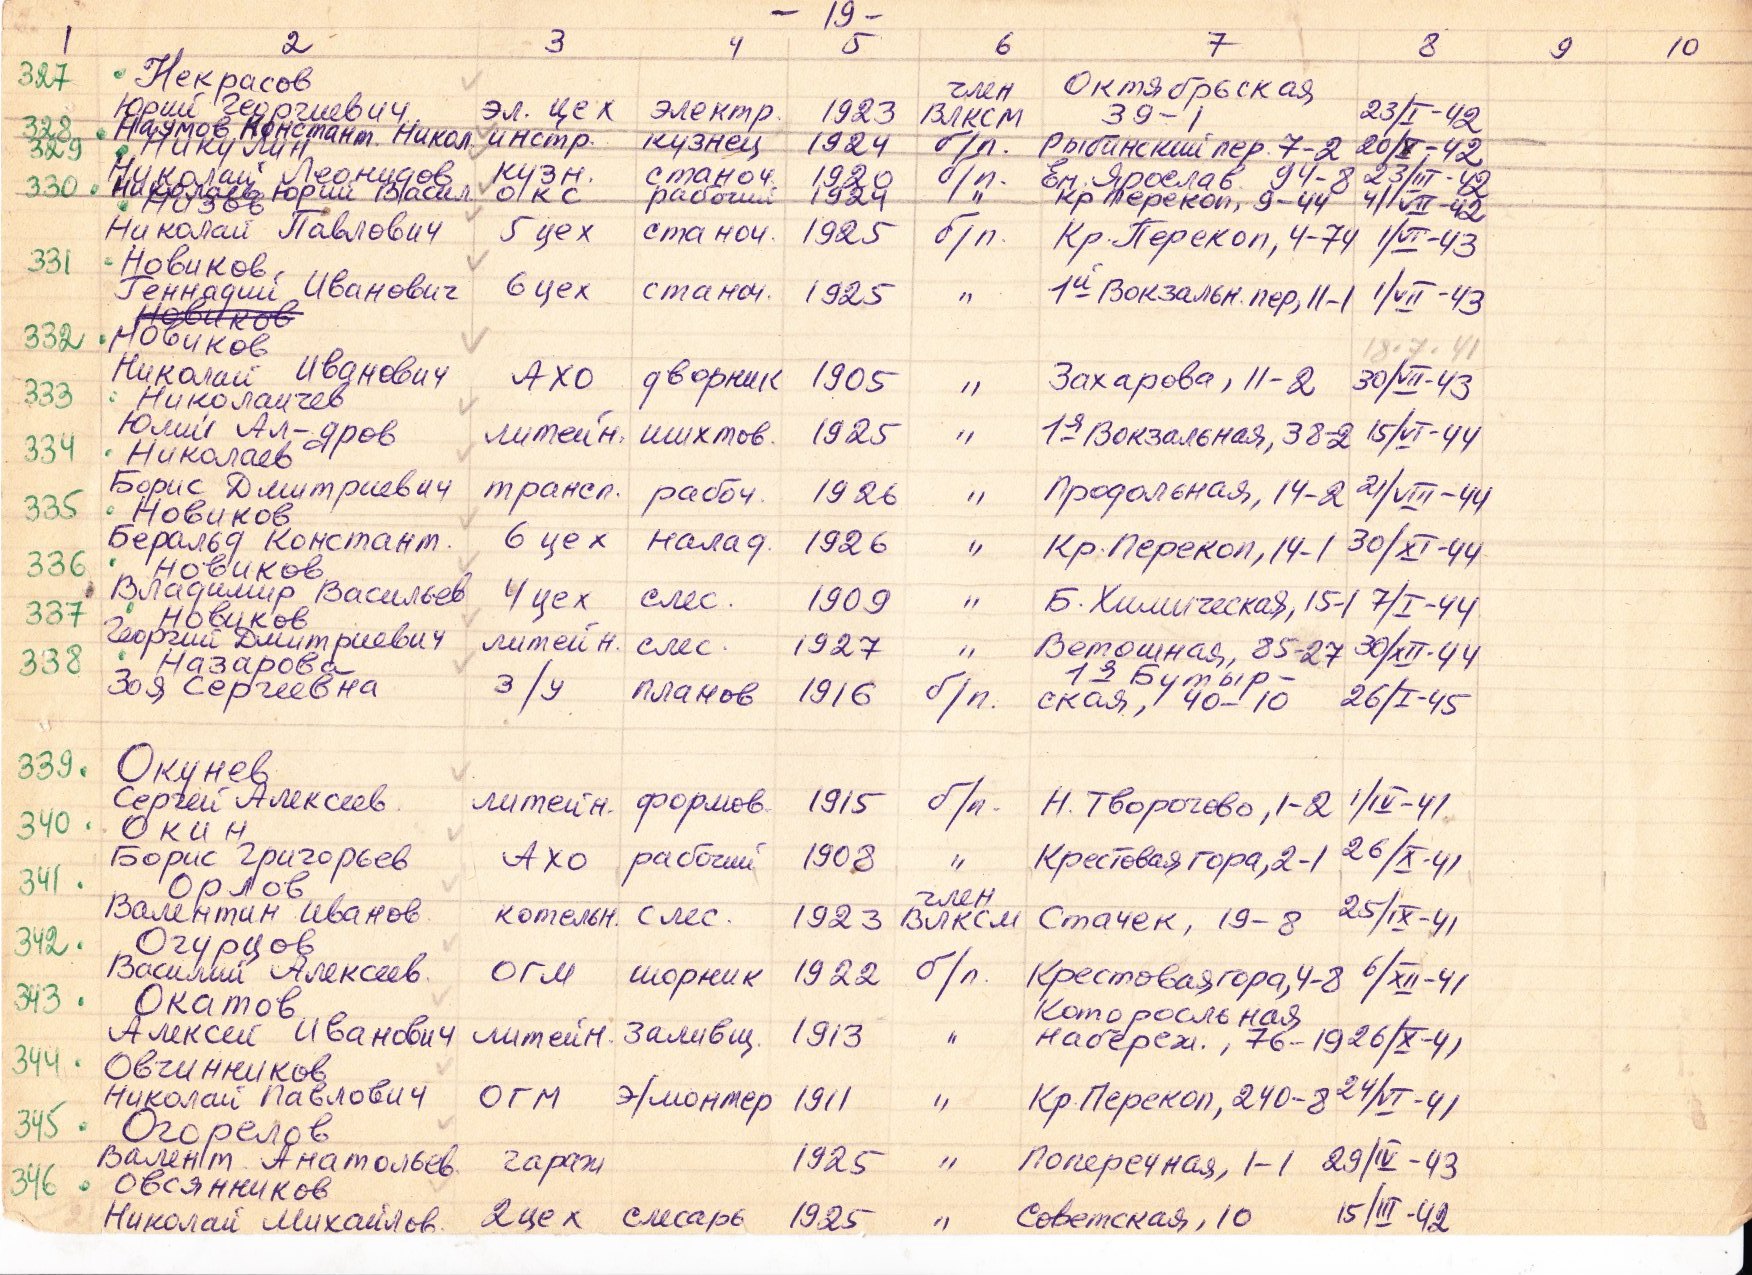 - 19 -
1 2 3 4 5 6 7 8 9 10
327 Некрасов член Октябрьская
Юрий Георгиевич эл. цех электр. 1923 ВЛКСМ 39-1 23/I-42
328 Наумов Констант. Никол. инстр. кузнец 1924 б/п. Рыбинский пер. 7-2 20/X-42
329 Никулин
Николай Леонидов кузн. станоч. 1920 б/п. Ем. Ярослав. 94-8 23/III-42
330 Николаев Юрий Васил. ОКС рабочий 1924 " Кр Перекоп, 9-44 4/VII-42
Низов
Николай Павлович 5 цех станоч. 1925 б/п. Кр. Перекоп, 4-74 1/VI-43
331 Новиков
Геннадий Иванович 6 цех станоч. 1925 " 1й Вокзальн. пер, 11-1 1/VII-43
Новиков
332 Новиков 18.7.41
Николай Иванович АХО дворник 1905 " Захарова, 11-2 30/VII-43
333 Николаичев
Юлий Ал-дров литейн. шихтов. 1925 " 1я Вокзальная, 38-2 15/VI-44
334 Николаев
Борис Дмитриевич трансп. рабоч. 1926 " Продольная, 14-2 21/VIII-44
335 Новиков
Беральд Констант. 6 цех налад. 1926 " Кр. Перекоп, 14-1 30/XI-44
336 Новиков
Владимир Васильев 4 цех слес. 1909 " Б. Химическая, 15-1 7/I-44
337 Новиков
Георгий Дмитриевич литейн. слес. 1927 " Ветошная, 85-27 30/XII-44
338 Назарова 1я Бутыр-
Зоя Сергеевна з/у планов 1916 б/п. ская, 40-10 26/I-45
339. Окунев
Сергей Алексеев. литейн. формов. 1915 б/п. Н. Творогово, 1-2 1/IV-41
340. Окин
Борис Григорьев АХО рабочий 1908 " Крестовая гора, 2-1 26/X-41
341. Орлов член
Валентин Иванов. котельн. слес. 1923 ВЛКСМ Стачек, 19-8 25/IX-41
342. Огурцов
Василий Алексеев. ОГМ шорник 1922 б/п. Крестовая гора, 4-8 6/XII-41
343. Окатов Которосльная
Алексей Иванович литейн. заливщ. 1913 " набереж., 76-19 26/X-41
344. Овчинников
Николай Павлович ОГМ э/монтер 1911 " Кр. Перекоп, 240-8 24/VI-41
345. Огорелов
Валент. Анатольев. гараж 1925 " Поперечная, 1-1 29/IV-43
346. Овсянников
Николай Михайлов. 2 цех слесарь 1925 " Советская, 10 15/III-42